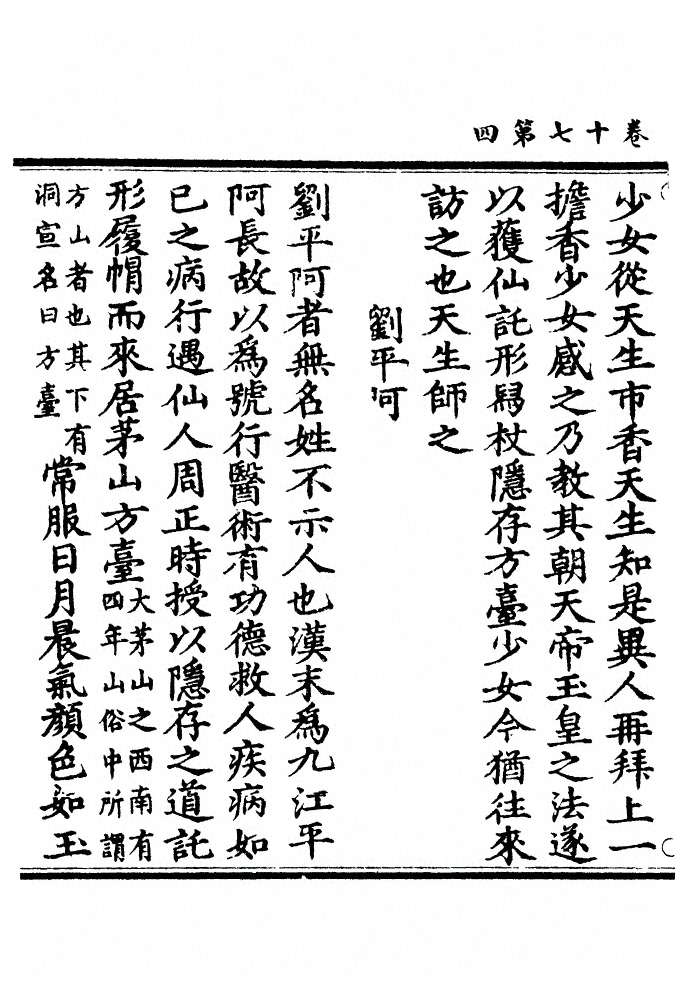 卷十七第四
少女從天生市香天生知是異人再拜上一
擔香少女感之乃教其朝天帝玉皇之法遂
以獲仙託形舄杖隱存方臺少女今猶往來
訪之也天生師之
劉平呵
劉平阿者無名姓不示人也漢末爲九江平
阿長故以爲號行醫術有功德救人疾病如
已之病行遇仙人周正時授以隱存之道託
形履帽而來居茅山方臺大茅山之西南有四年山俗中所謂
方山者也其下有洞宣名曰方臺常服日月晨氣顏色如玉